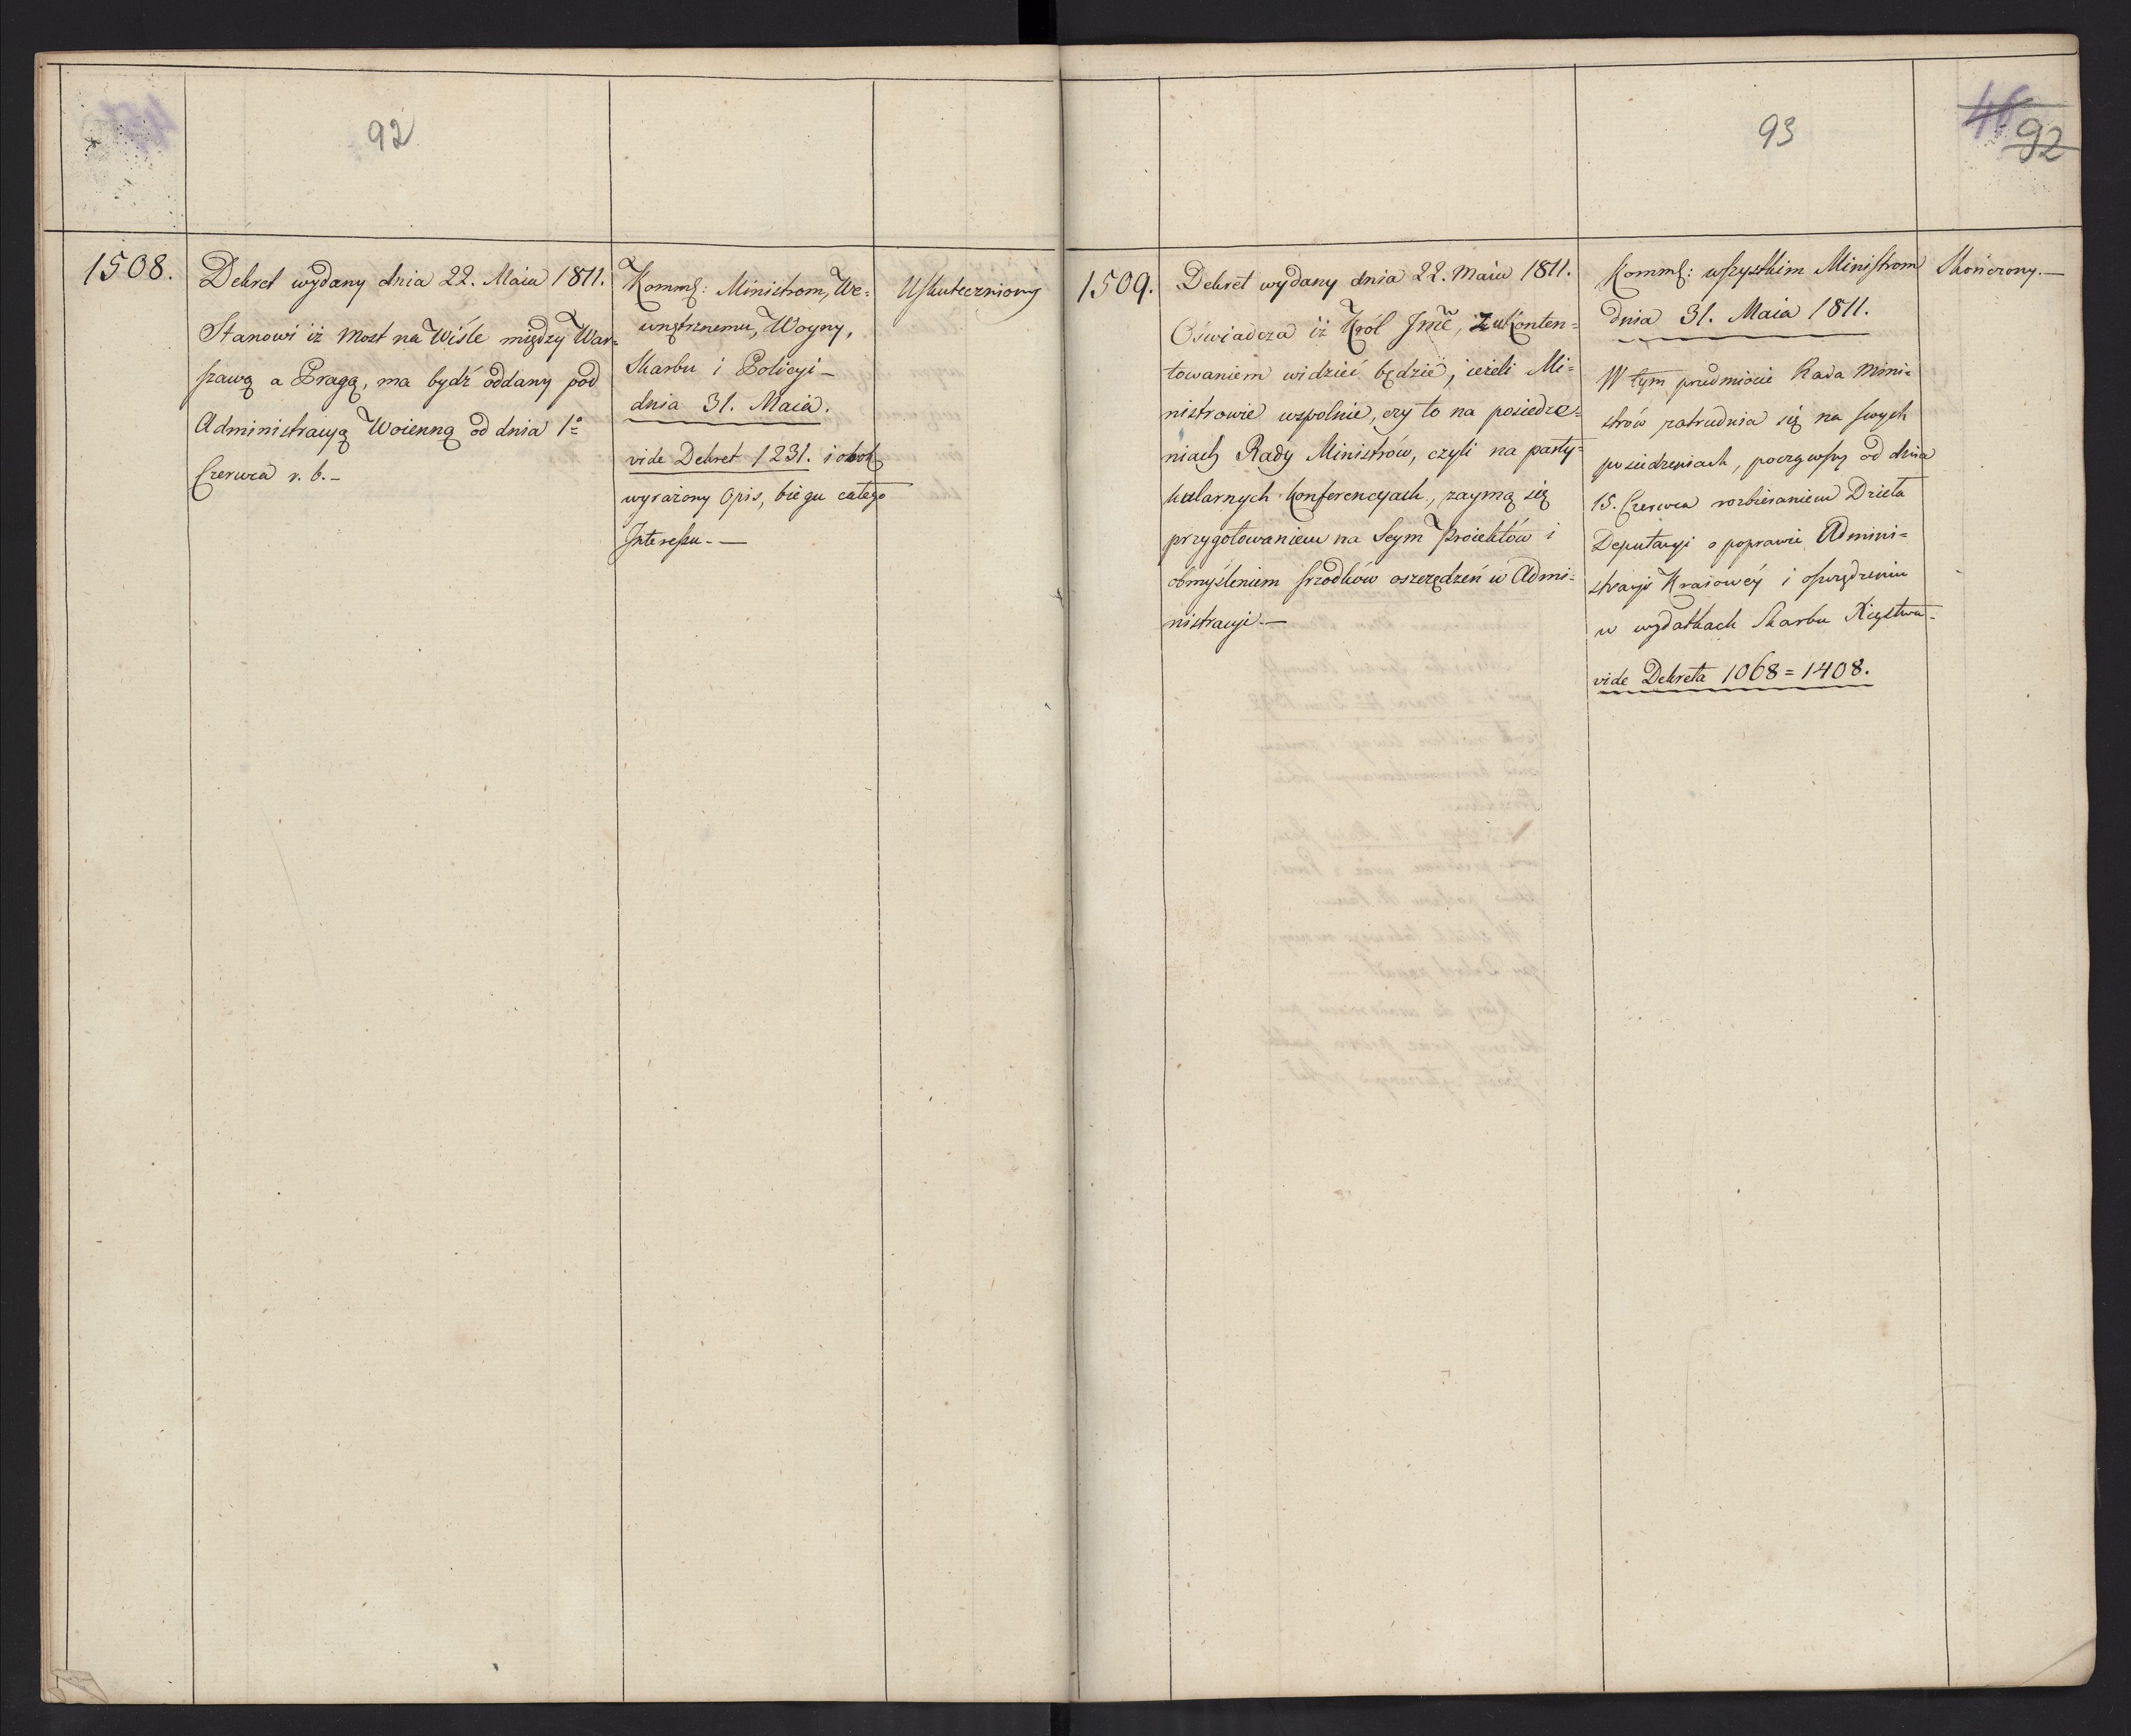 92
1508.
Dekret wydany dnia 22. Maia 1811.
Stanowi iż Most na Wiśle między War=
szawą a Pragą, ma bydź oddany pod
Administracyą Woienną od dnia 1º
Czerwca r. b. –
Kommq: Ministrom, We=
wnętrznemu, Woyny,
Skarbu i Policyi –
dnia 31. Maia.
vide Dekret 1231. i obok
wyrażony Opis, biegu całego
Interessu. —
Uskuteczniony
93
46
92
1509.
Dekret wydany dnia 22. Maia 1811.
Oświadcza iż Król Jmć, z ukonten=
towaniem widzieć będzie, ieżeli Mi=
nistrowie wspolnie, czy to na posiedze=
niach Rady Ministrów, czyli na party=
kularnych konferencyach, zaymą się
przygotowaniem na Seym Proiektów i
obmyśleniem srzodków oszczędzeń w Admi=
nistracyi. —
Kommq: wszystkim Ministrom
dnia 31. Maia 1811.
W tym przedmiocie Rada Mini=
strów zatrudnia się na swych
posiedzeniach, począwszy od dnia
15. Czerwca rozbieraniem Dzieła
Deputacyi o poprawie Admini=
stracyi Kraiowéy i oszczędzeniu
w wydatkach Skarbu Xięstwa.
vide Dekreta 1068 = 1408.
Skończony. —